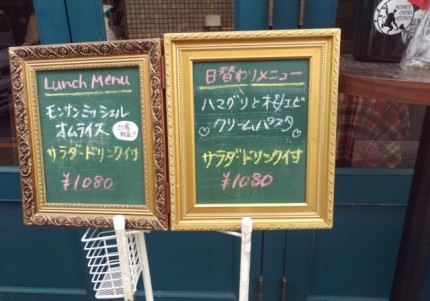 Lunch Menu
モンサンミッシェル
オムライス
サラダ・ドリンク付
¥1080
日替わりメニュー
ハマグリと桜エビ
クリームパスタ
サラダ・ドリンク付
¥1080